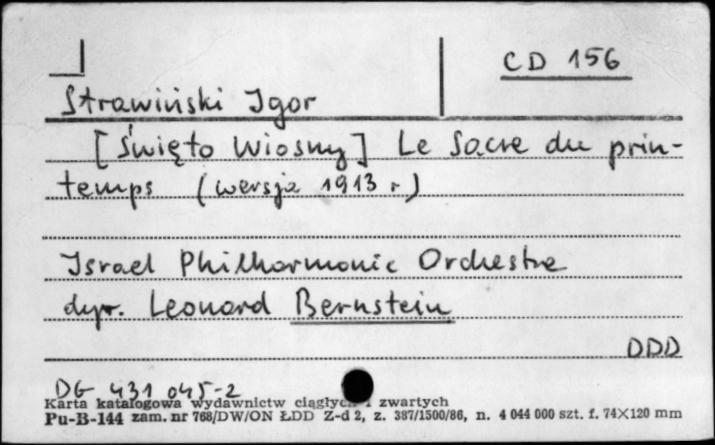 CD 156
Strawiński Igor
[Święto Wiosny] Le Sacre du prin-
temps (wersja 1913 r)
Israel Philharmonic Orchestra
dyr. Leonard Bernstein
DDD
DG 431 045-2
Karta katalogowa wydawnictw ciągłych i zwartych
Pu-B-144 zam. nr 768/DW/ON ŁDD Z-d 2, z. 387/1500/86, n. 4 044 000 szt. f. 74×120 mm